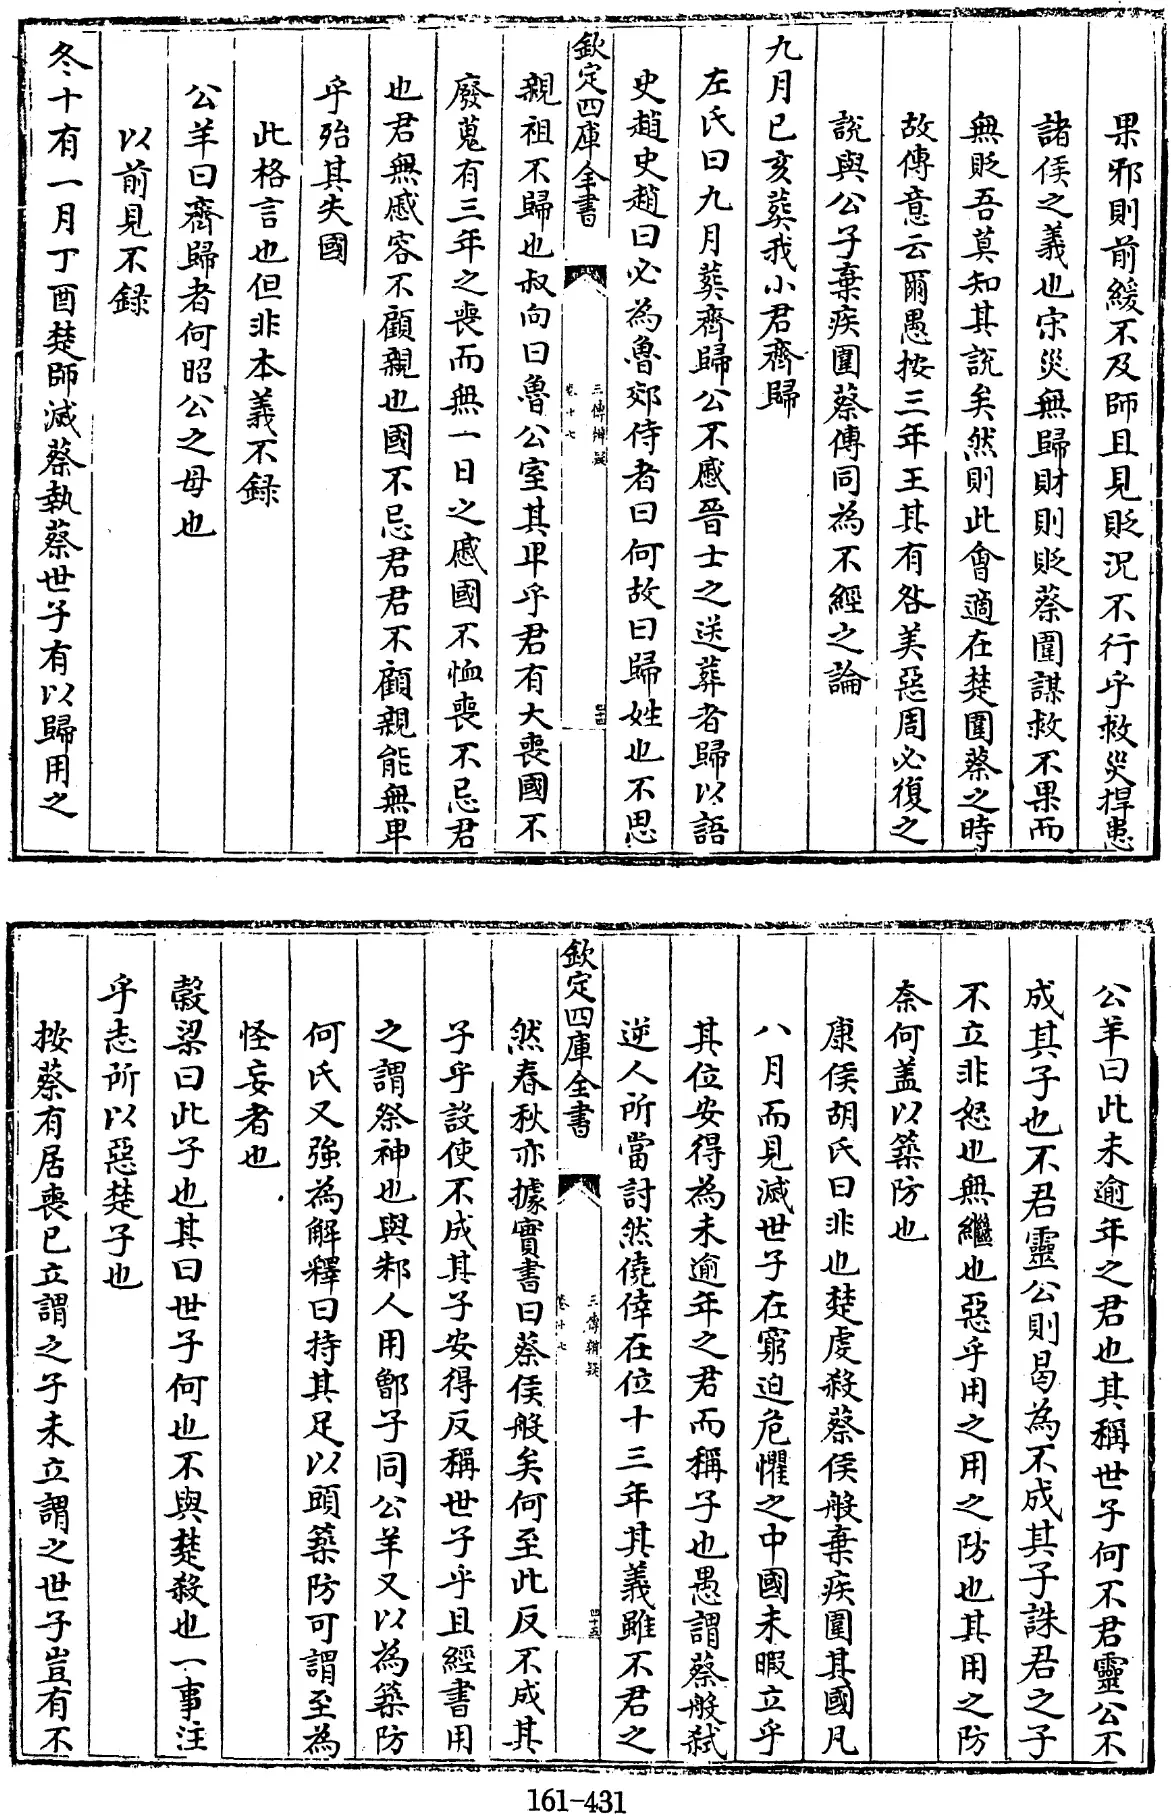 果邪則前緩不及師且見貶況不行乎救災捍患
諸侯之義也宋災無歸財則貶蔡圍謀救不果而
無貶吾莫知其說矣然則此會適在楚圍蔡之時
故傳意云爾愚按三年王其有咎美惡周必復之
說與公子棄疾圍蔡傳同為不經之論
九月己亥葬我小君齊歸
左氏曰九月葬齊歸公不慼晉士之送葬者歸以語
史趙史趙曰必為魯郊侍者曰何故曰歸姓也不思
欽定四庫全書
三傳辨疑
卷十七
四十四
親祖不歸也叔向曰魯公室其卑乎君有大喪國不
廢蒐有三年之喪而無一日之慼國不恤喪不忌君
也君無慼容不顧親也國不忌君君不顧親能無卑
乎殆其失國
此格言也但非本義不録
公羊曰齊歸者何昭公之母也
以前見不録
冬十有一月丁酉楚師滅蔡執蔡世子有以歸用之
公羊曰此未逾年之君也其稱世子何不君靈公不
成其子也不君靈公則曷為不成其子誅君之子
不立非怒也無繼也惡乎用之用之防也其用之防
奈何蓋以築防也
康侯胡氏曰非也楚虔殺蔡侯般棄疾圍其國凡
八月而見滅世子在窮迫危懼之中國未暇立乎
其位安得為未逾年之君而稱子也愚謂蔡般弑
逆人所當討然僥倖在位十三年其義雖不君之
欽定四庫全書
三傳辨疑
卷十七
四十五
然春秋亦據實書曰蔡侯般矣何至此反不成其
子乎設使不成其子安得反稱世子乎且經書用
之謂祭神也與邾人用鄫子同公羊又以為築防
何氏又強為解釋曰持其足以頭築防可謂至為
怪妄者也
穀梁曰此子也其曰世子何也不與楚殺也一事注
乎志所以惡楚子也
按蔡有居喪已立謂之子未立謂之世子豈有不
161-431